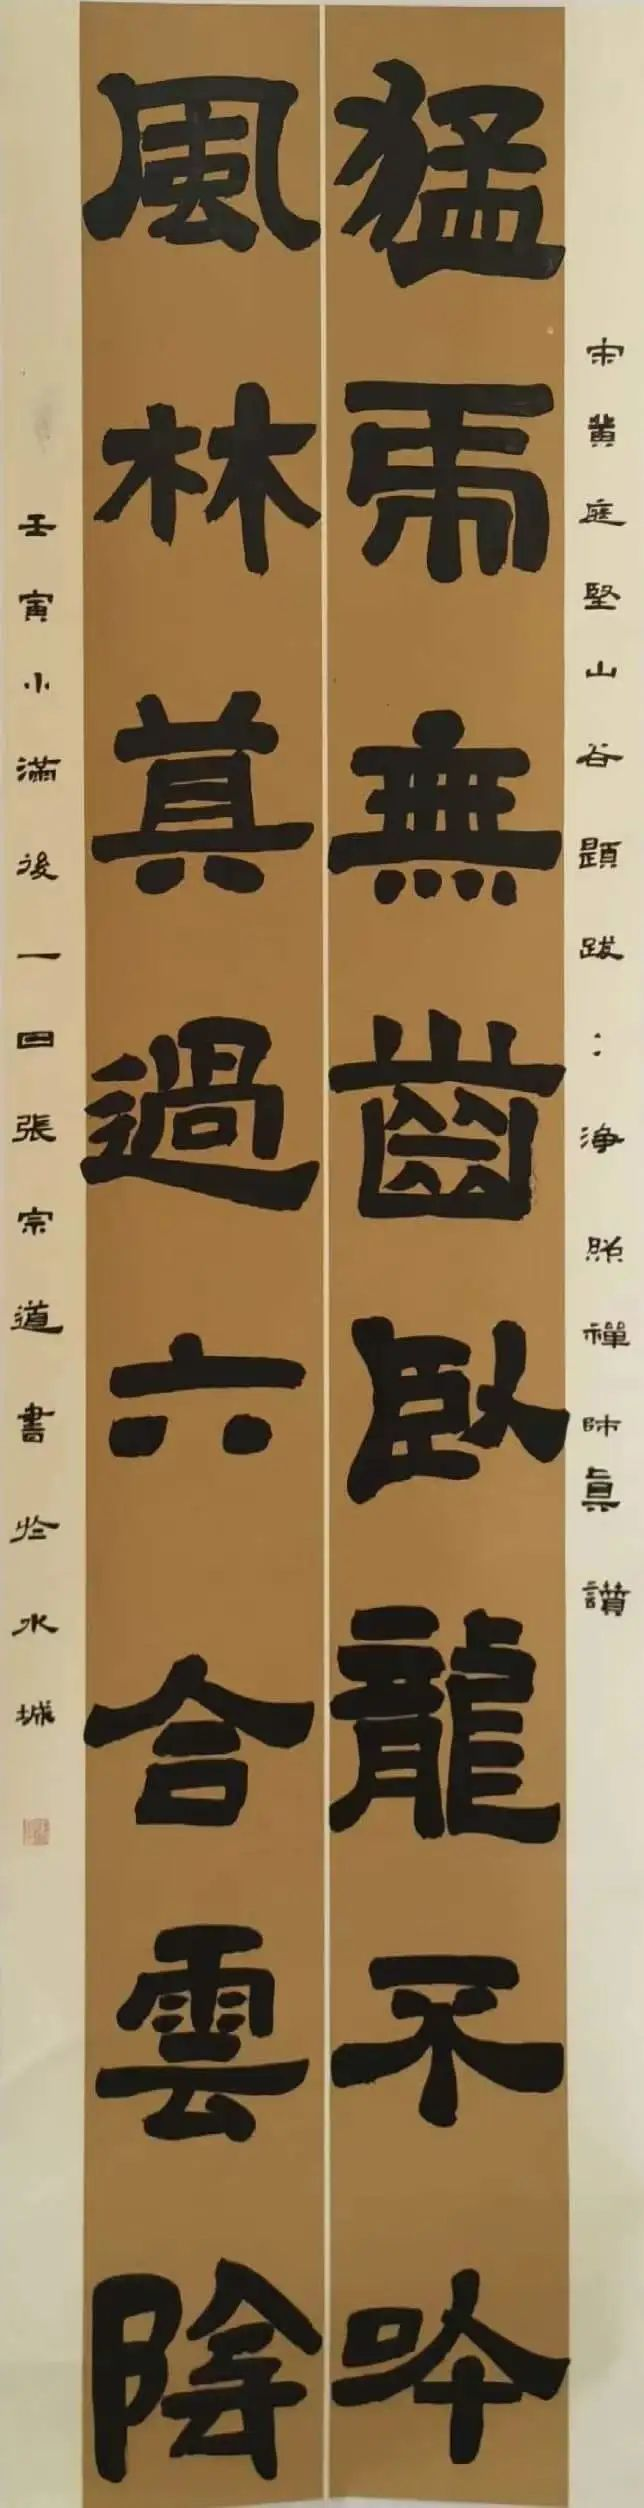 宋黄庭堅山谷題跋：净照禪師眞讚
猛虎無齒卧龍不吟
風林莫過六合雲陰
壬寅小滿後一日張宗道書於水城